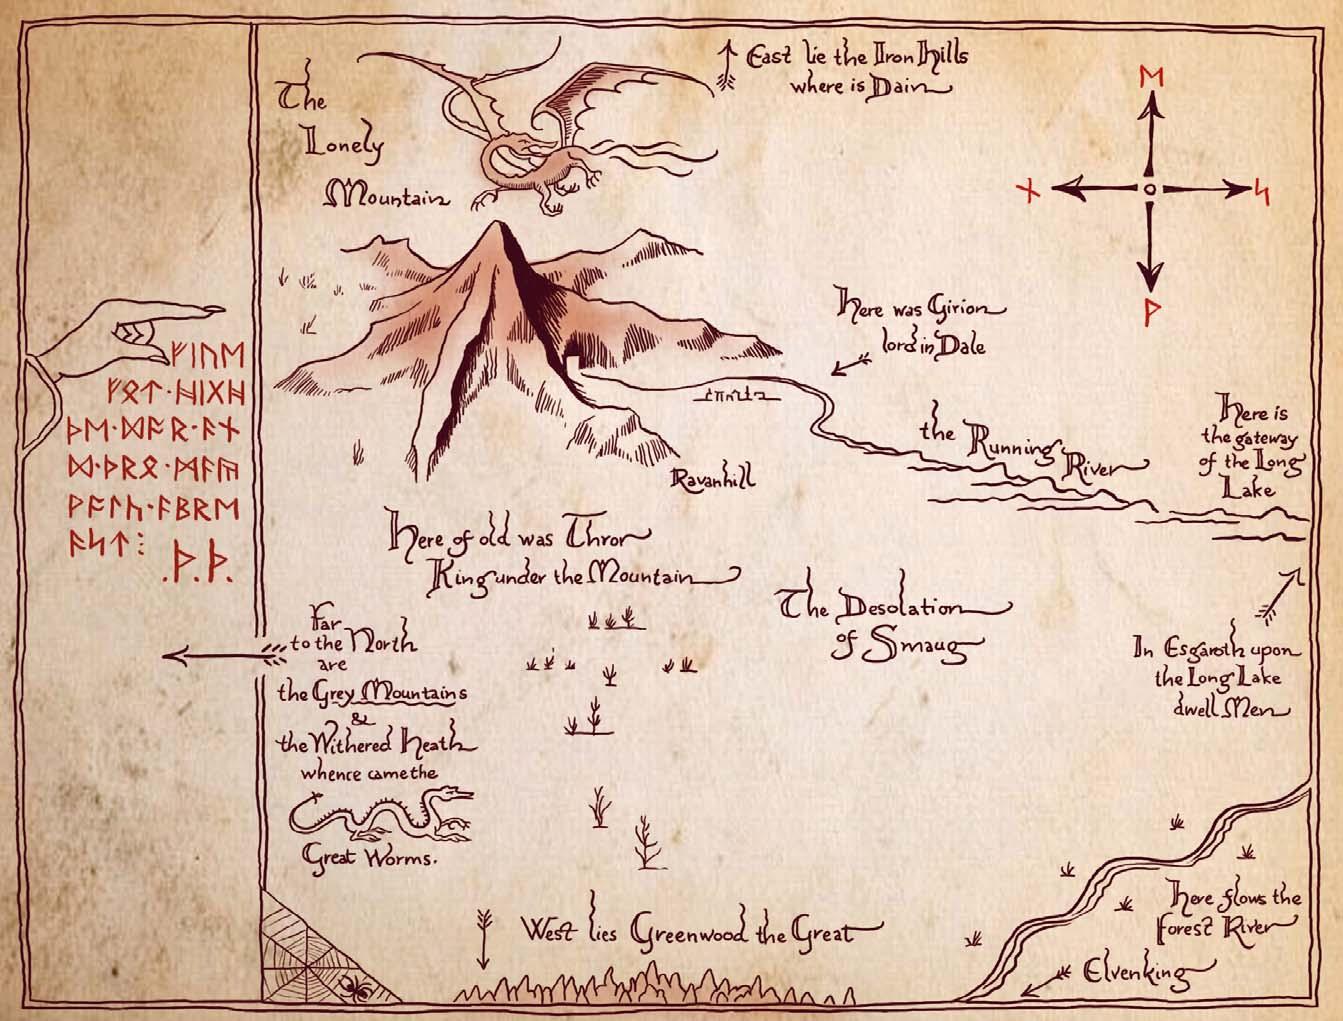 The
Lonely
Mountain
East lie the Iron Hills
where is Dain
ᛖ
ᚾ
ᛋ
ᚹ
Here was Girion
lord in Dale
ᚠᛁᚢᛖ
ᚠᛟᛏ·ᚻᛁᚷᚻ
ᚦᛖ·ᛞᚩᚱ·ᚫᚾ
ᛞ·ᚦᚱᛟ·ᛗᚫᚣ
ᚹᚫᛚᚳ·ᚫᛒᚱᛖ
ᚫᛋᛏ⋮
.ᚦ.ᚦ.
the Running River
Here is
the gateway
of the Long
Lake
Ravanhill
Here of old was Thror
King under the Mountain
The Desolation
of Smaug
Far
to the North
are
the Grey Mountains
&
the Withered Heath
whence came the
Great Worms.
In Esgaroth upon
the Long Lake
dwell Men
West lies Greenwood the Great
Here flows the
Forest River
Elvenking